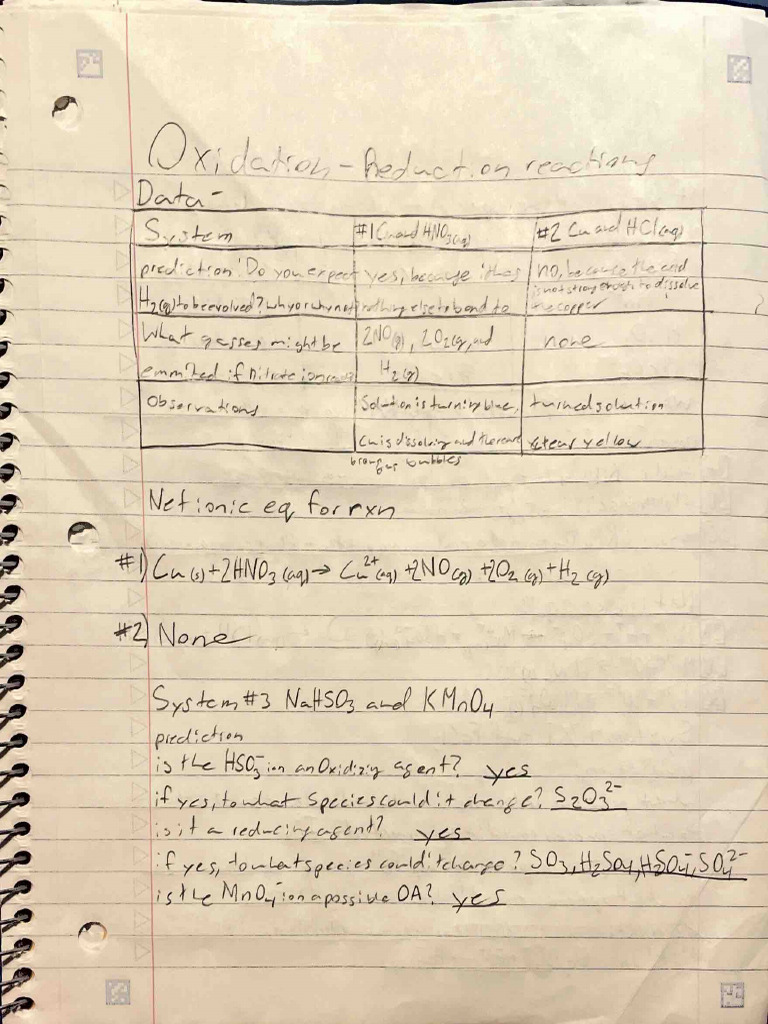 Oxidation - Reduction reactions
Data -
System #1 Cu and HNO3(aq) #2 Cu and HCl(aq)
prediction: Do you expect yes, because it has no, because the acid
H2(g) to be evolved? why or why not nothing else to bond to is not strong enough to dissolve
the copper
What gasses might be 2NO(g), 2O2(g), and none
emmited if nitrate ion H2(g)
Observations Solution is turning blue, turned solution
Cu is dissolving and there are clear yellow
bubbles
Net ionic eq for rxn
#1) Cu(s) + 2HNO3(aq) → Cu2+(aq) + 2NO(g) + 2O2(g) + H2(g)
#2) None
System #3 NaHSO3 and KMnO4
prediction
is the HSO3- ion an Oxidizing agent? yes
if yes, to what species could it change? S2O3 2-
is it a reducing agent? yes
if yes, to what species could it change? SO3, H2SO4, HSO4-, SO4 2-
is the MnO4- ion a possible OA? yes